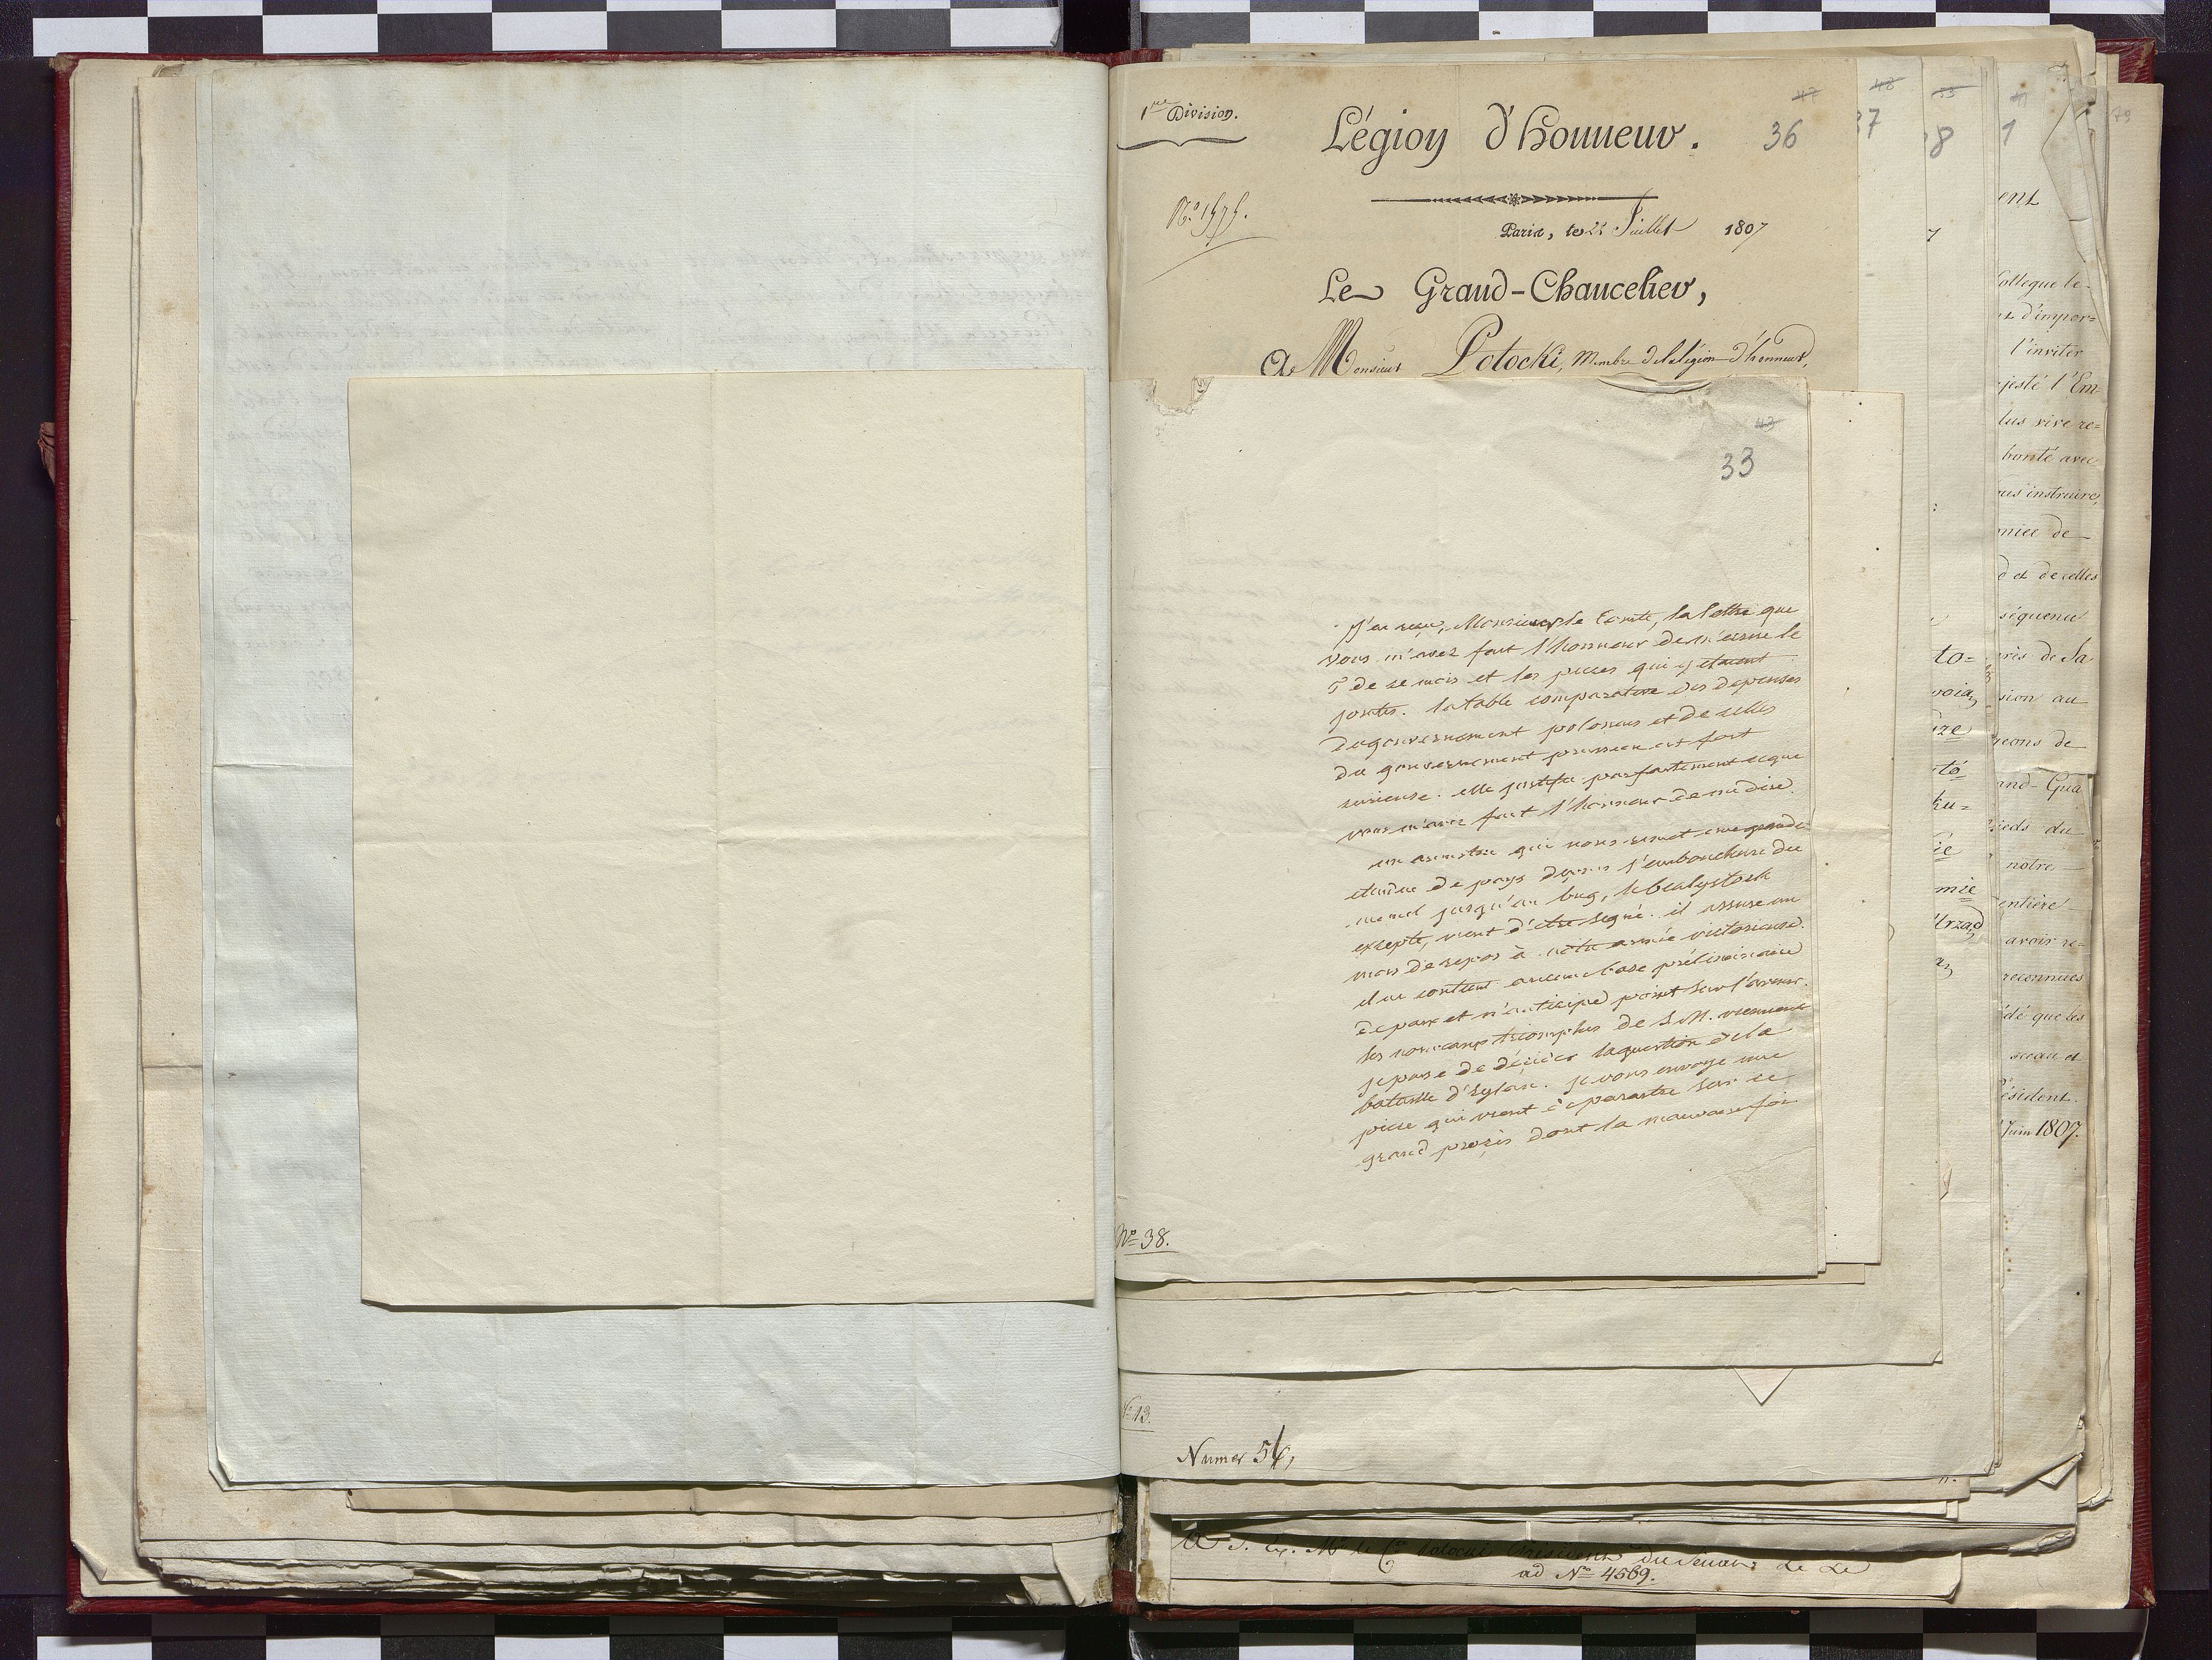 1ere Division.
Légion d'honneur.
47
36
No. 1575.
Paris, le 22 Juillet 1807
Le Grand-Chancelier,
A Monsieur Potocki, Membre de la légion d'honneur,
43
33
J'ai reçu, Monsieur le Comte, la lettre que
vous m'avez fait l'honneur de m'écrire le
5 de ce mois et les pieces qui y étaient
jointes. la table comparative des depenses
du gouvernement polonais et de celles
du gouvernement prussien est fort
curieuse. elle justifie parfaitement ce que
vous m'avez fait l'honneur de me dire.
un armistice qui nous remet une grande
etendue de pays depuis l'embouchure du
memel jusqu'au bug, le bialystock
excepté, vient d'être signé. il assure un
mois de repos à notre armée victorieuse.
il ne contient aucune base préliminaire
de paix et n'anticipe point sur l'avenir.
les nouveaux triomphes de S.M. viennent
je pense de décider la question de la
bataille d'Eylau. je vous envoye une
piece qui vient de paraitre sur ce
grand procès dont la mauvaise foi
No 38.
No 13.
Numer 54,
37
48
8
33
7
to=
ku=
mie
Urząd
41
1
ent
Collegue le
d'impor=
l'inviter
jesté l'Em
lus vive re=
bonté avec
instruire,
de
d et de celles
séquence
près de Sa
sion au
geons de
and-Qua
ieds du
notre
entière
avoir re=
reconnues
dé que les
sceau et
Président.
Juin 1807.
79
A S. Ex. Mr le Cte Potocki Président du Senat
ad No 4569.